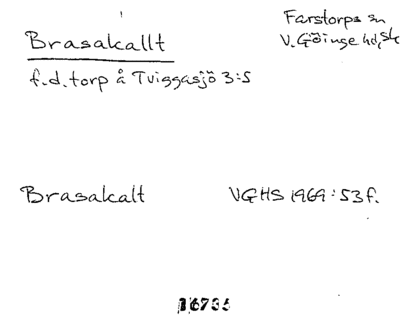 Brasakallt
Farstorps sn
V. Göinge hd, Sk
f.d. torp å Tviggasjö 3:5
Brasakalt
VGHS 1969:53 f.